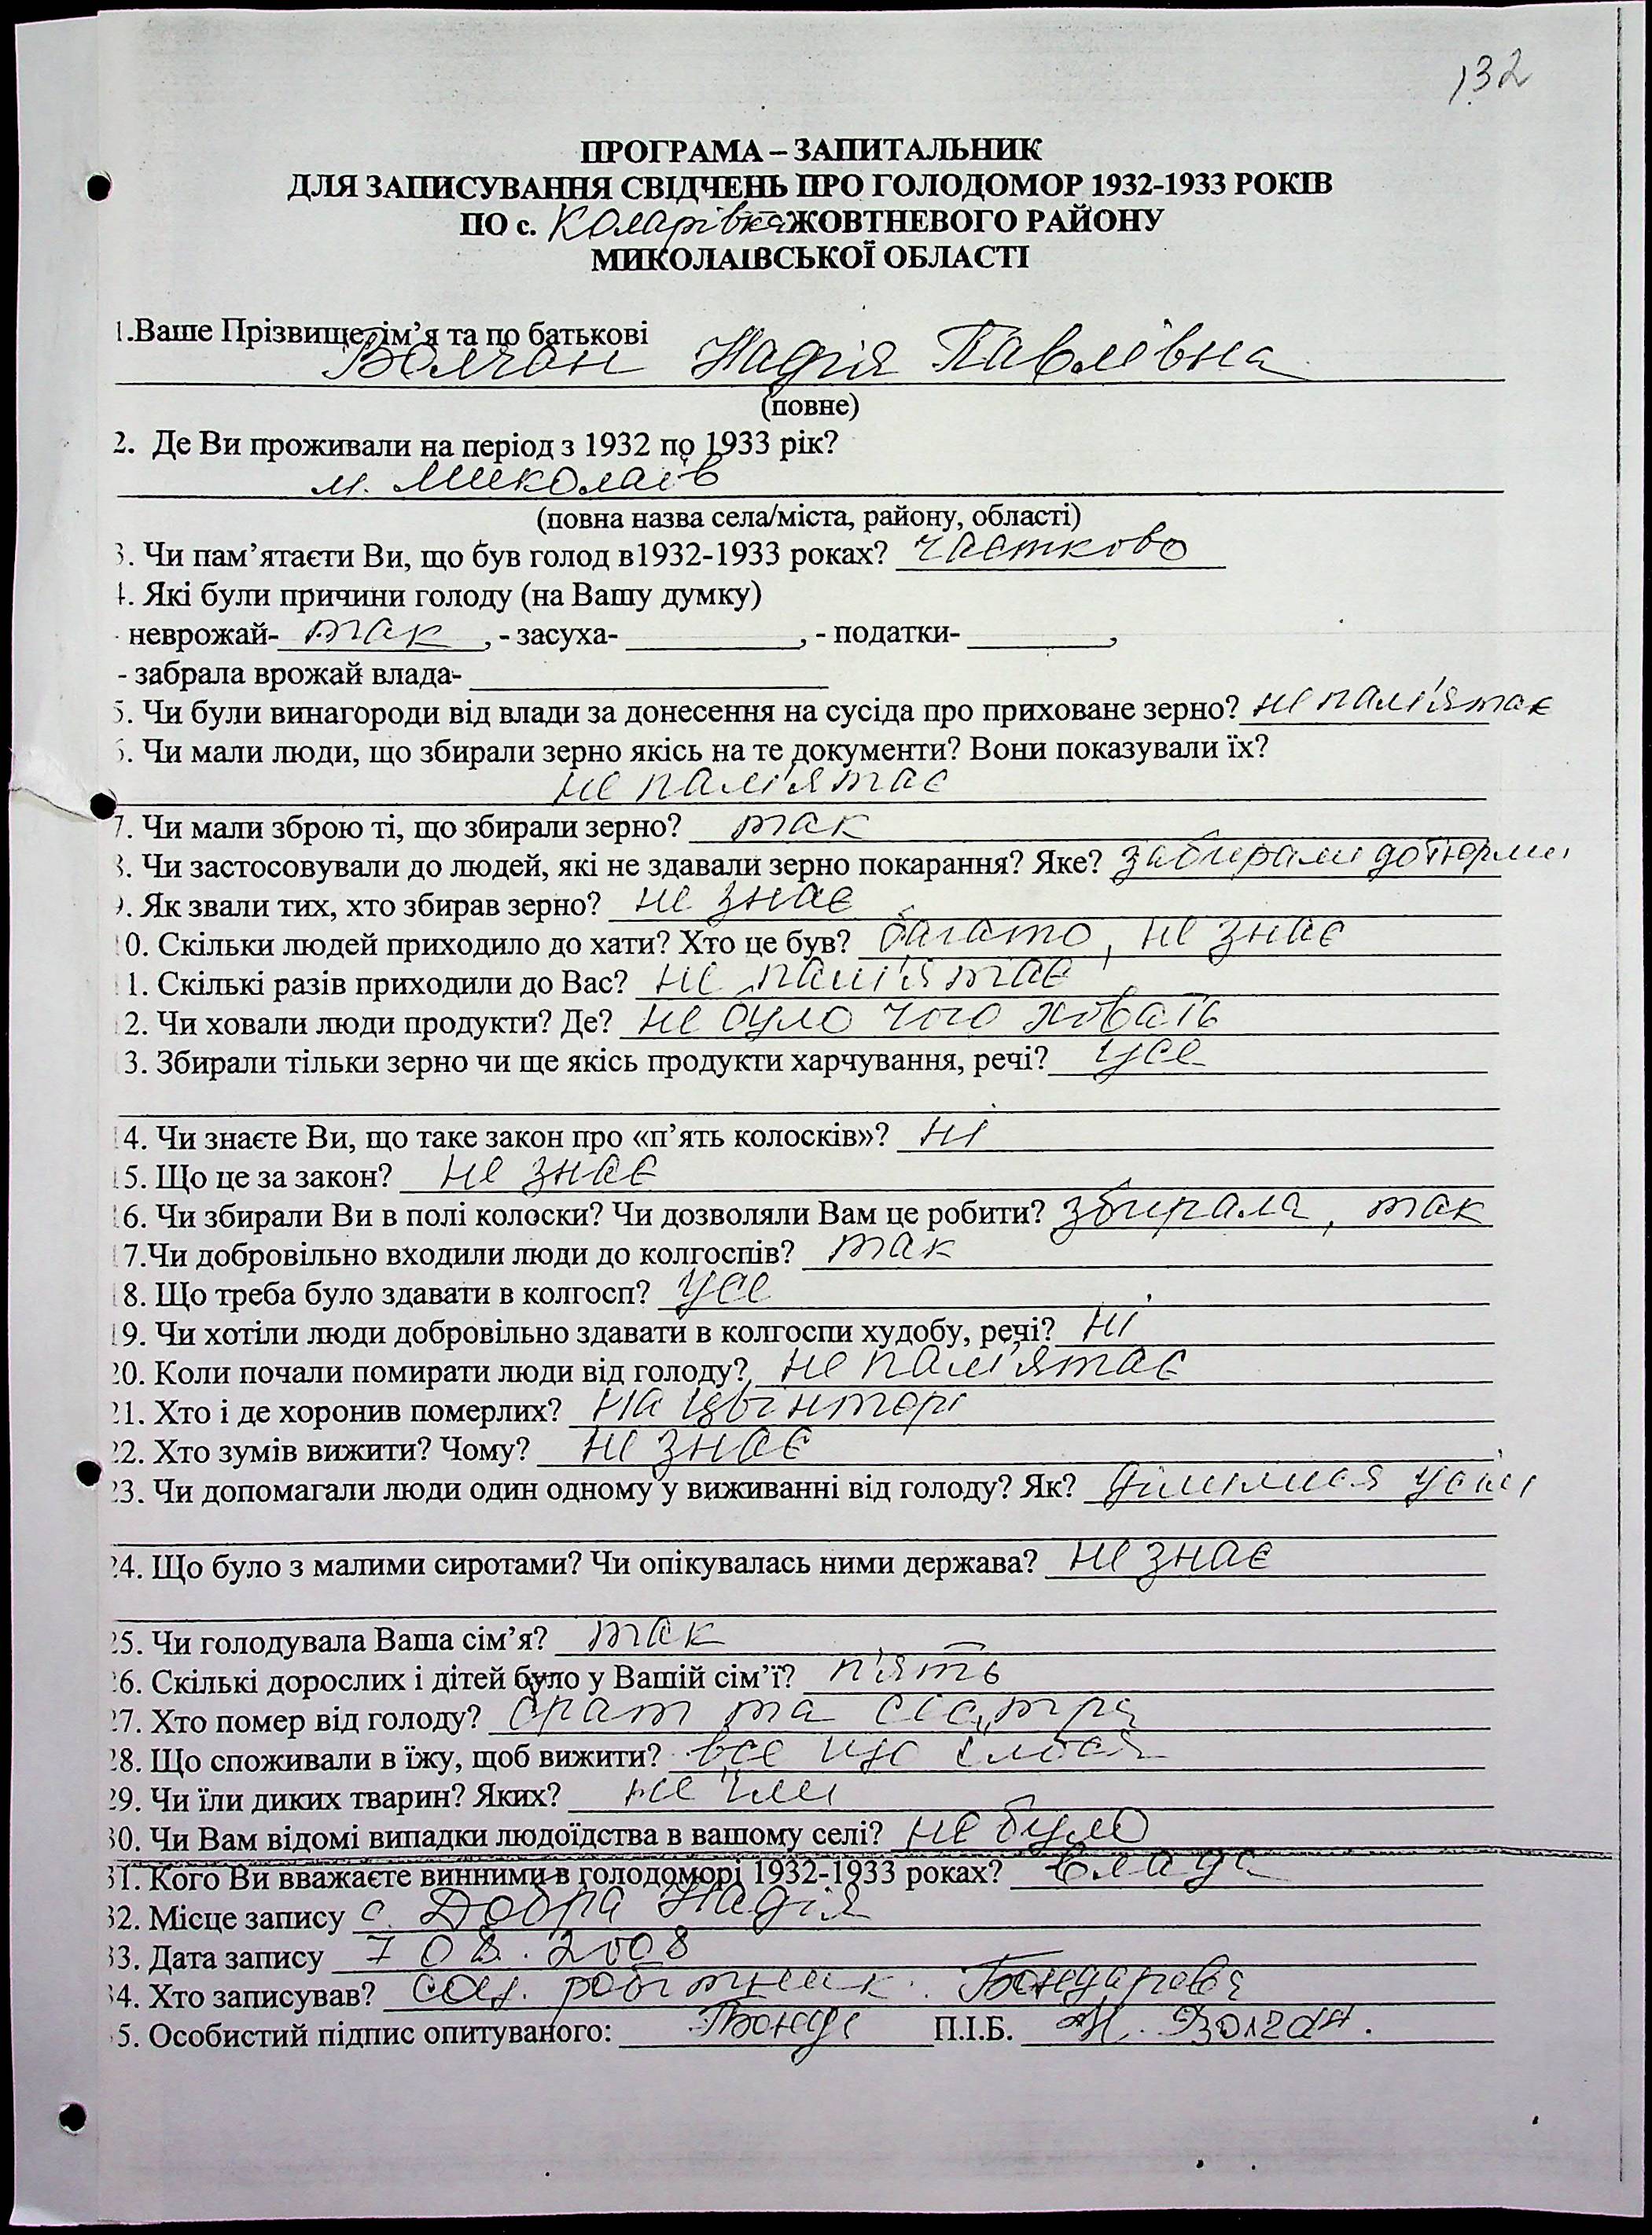 132
ПРОГРАМА – ЗАПИТАЛЬНИК
ДЛЯ ЗАПИСУВАННЯ СВІДЧЕНЬ ПРО ГОЛОДОМОР 1932-1933 РОКІВ
ПО с. Коларівка ЖОВТНЕВОГО РАЙОНУ
МИКОЛАЇВСЬКОЇ ОБЛАСТІ
1.Ваше Прізвище, ім’я та по батькові
Волчан Надія Павлівна
(повне)
2. Де Ви проживали на період з 1932 по 1933 рік?
м. Миколаїв
(повна назва села/міста, району, області)
3. Чи пам’ятаєти Ви, що був голод в1932-1933 роках? частково
4. Які були причини голоду (на Вашу думку)
- неврожай- так, - засуха- , - податки- ,
- забрала врожай влада-
5. Чи були винагороди від влади за донесення на сусіда про приховане зерно? не пам'ятає
6. Чи мали люди, що збирали зерно якісь на те документи? Вони показували їх?
не пам'ятає
7. Чи мали зброю ті, що збирали зерно? так
8. Чи застосовували до людей, які не здавали зерно покарання? Яке? забирали до тюрми
9. Як звали тих, хто збирав зерно? не знає
10. Скільки людей приходило до хати? Хто це був? багато, не знає
11. Скількі разів приходили до Вас? не пам'ятає
12. Чи ховали люди продукти? Де? не було чого ховать
13. Збирали тільки зерно чи ще якісь продукти харчування, речі? усе
14. Чи знаєте Ви, що таке закон про «п’ять колосків»? ні
15. Що це за закон? не знає
16. Чи збирали Ви в полі колоски? Чи дозволяли Вам це робити? збирала, так
17.Чи добровільно входили люди до колгоспів? так
18. Що треба було здавати в колгосп? усе
19. Чи хотіли люди добровільно здавати в колгоспи худобу, речі? ні
20. Коли почали помирати люди від голоду? не пам'ятає
21. Хто і де хоронив померлих? на цвінторі
22. Хто зумів вижити? Чому? не знає
23. Чи допомагали люди один одному у виживанні від голоду? Як? ділилися усім
24. Що було з малими сиротами? Чи опікувалась ними держава? не знає
25. Чи голодувала Ваша сім’я? так
26. Скількі дорослих і дітей було у Вашій сім’ї? п'ять
27. Хто помер від голоду? брат та сестра
28. Що споживали в їжу, щоб вижити? все що їлося
29. Чи їли диких тварин? Яких? не їли
30. Чи Вам відомі випадки людоїдства в вашому селі? не було
31. Кого Ви вважаєте винними в голодоморі 1932-1933 роках? влада
32. Місце запису с. Добра Надія
33. Дата запису 7 08. 2008
34. Хто записував? соц. робітник. Бондарева
35. Особистий підпис опитуваного: П.І.Б. Н. Волчан.